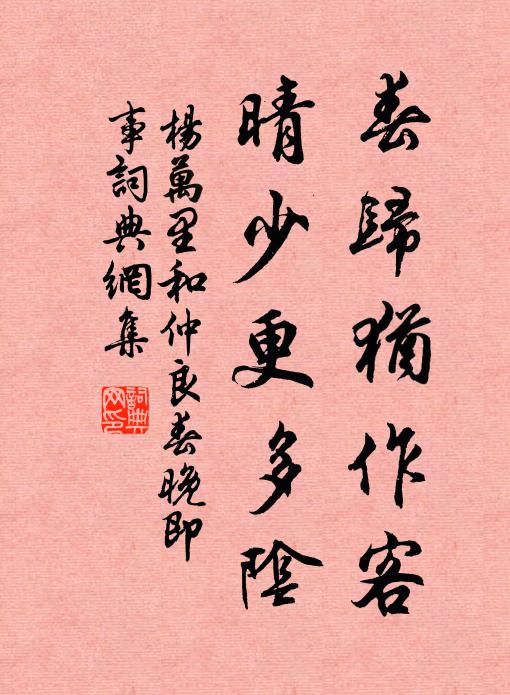 春歸猶作客
晴少更多陰
楊萬里和仲良春晚即
事詞典網集
詞典
网印